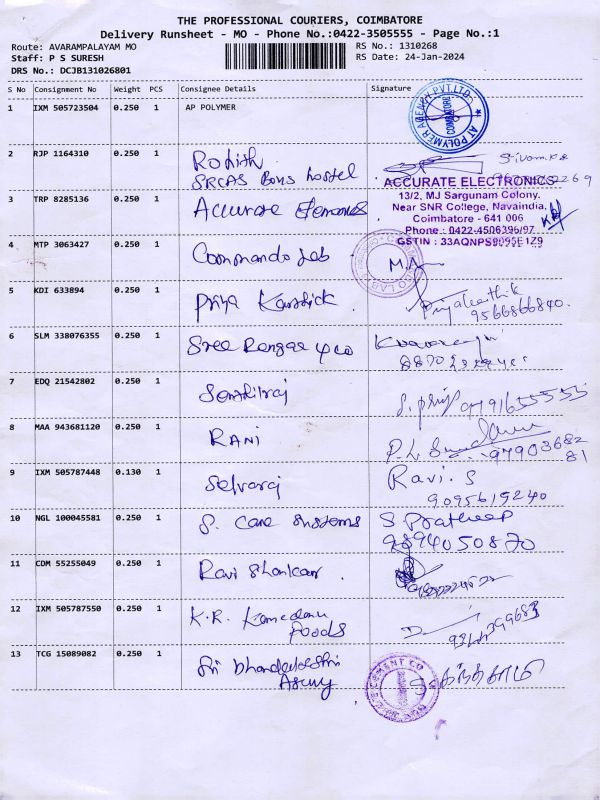 THE PROFESSIONAL COURIERS, COIMBATORE
Delivery Runsheet - MO - Phone No.:0422-3505555 - Page No.:1
Route: AVARAMPALAYAM MO
RS No.: 1310268
Staff: P S SURESH
RS Date: 24-Jan-2024
DRS No.: DCJB131026801
S No Consignment No Weight PCS Consignee Details Signature
1 IXM 505723504 0.250 1 AP POLYMER
AT POLYMER AGENCY PVT.LTD COIMBATORE
2 RJP 1164310 0.250 1 Rohith
SRCAS Boys hostel
3 TRP 8285136 0.250 1 Accurate
ACCURATE ELECTRONICS
13/2, MJ Sargunam Colony,
Near SNR College, Navaindia,
Coimbatore - 641 006
Phone : 0422-4506396/97
GSTIN : 33AQNPS9095E1Z9
4 MTP 3063427 0.250 1 Commando Lab
5 KDI 633894 0.250 1 Priya Karthick
Priyakarthik
9566866840.
6 SLM 338076355 0.250 1 Sree Rengas & co
7 EDQ 21542802 0.250 1 Senthilraj
S. priya 9791655555
8 MAA 943681120 0.250 1 RANI
97903682
81
9 IXM 505787448 0.130 1 Selvaraj
Ravi. S
9095615240
10 NGL 100045581 0.250 1 S. Care Systems
S Pratheep
9894050870
11 CDM 55255049 0.250 1 Ravi Shankar.
12 IXM 505787550 0.250 1 K.R.
Foods
13 TCG 15089082 0.250 1 Sri
CEMENT CO